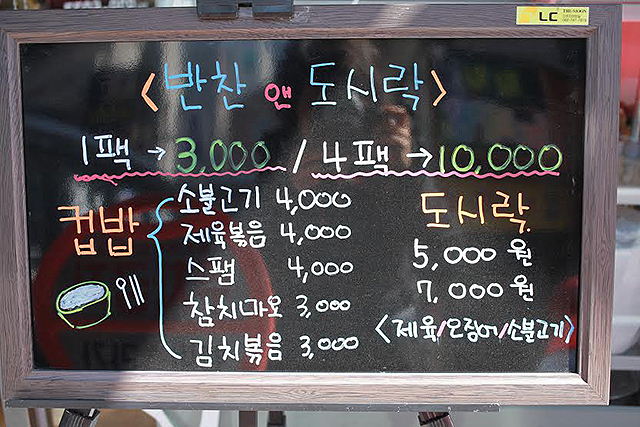 LC
<반찬 앤 도시락>
1팩 → 3,000 / 4팩 → 10,000
컵밥
소불고기 4,000
제육볶음 4,000
스팸 4,000
참치마요 3,000
김치볶음 3,000
도시락
5,000 원
7,000 원
<제육/오징어/소불고기>